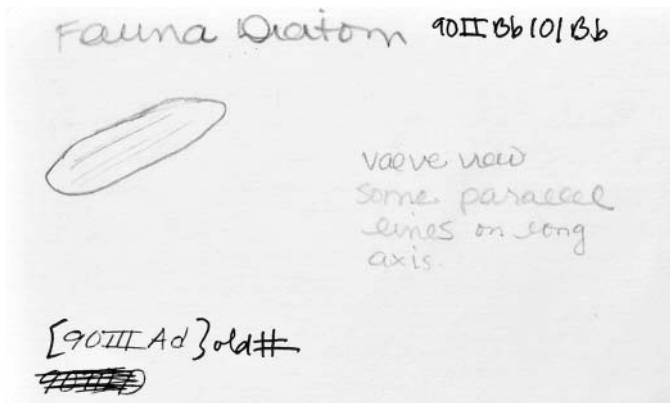 Fauna Diatom 90IIBb101Bb
valve view
some parallel
lines on long
axis.
[90III Ad} old #